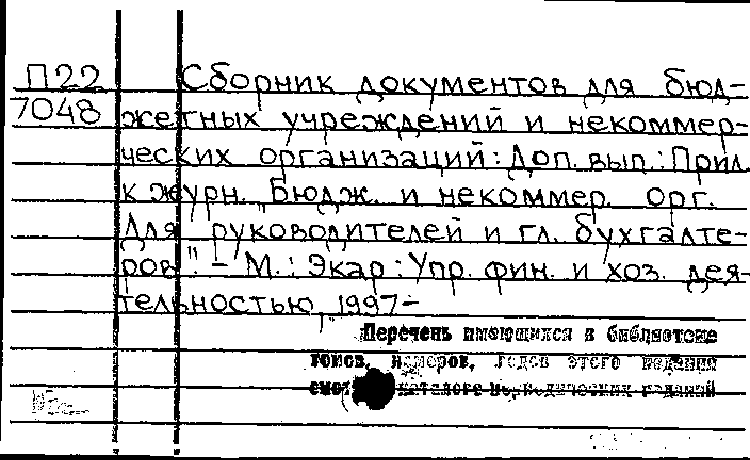 П22
7048
Сборник документов для бюд-
жетных учреждений и некоммер-
ческих организаций: Доп. вып.: Прил.
к журн. „Бюдж. и некоммер. орг.
Для руководителей и гл. бухгалте-
ров". – М.: Экар: Упр. фин. и хоз. дея-
тельностью, 1997–
Перечень имеющихся в библиотеке
томов, номеров, годов этого издания
смот каталоге периодических изданий